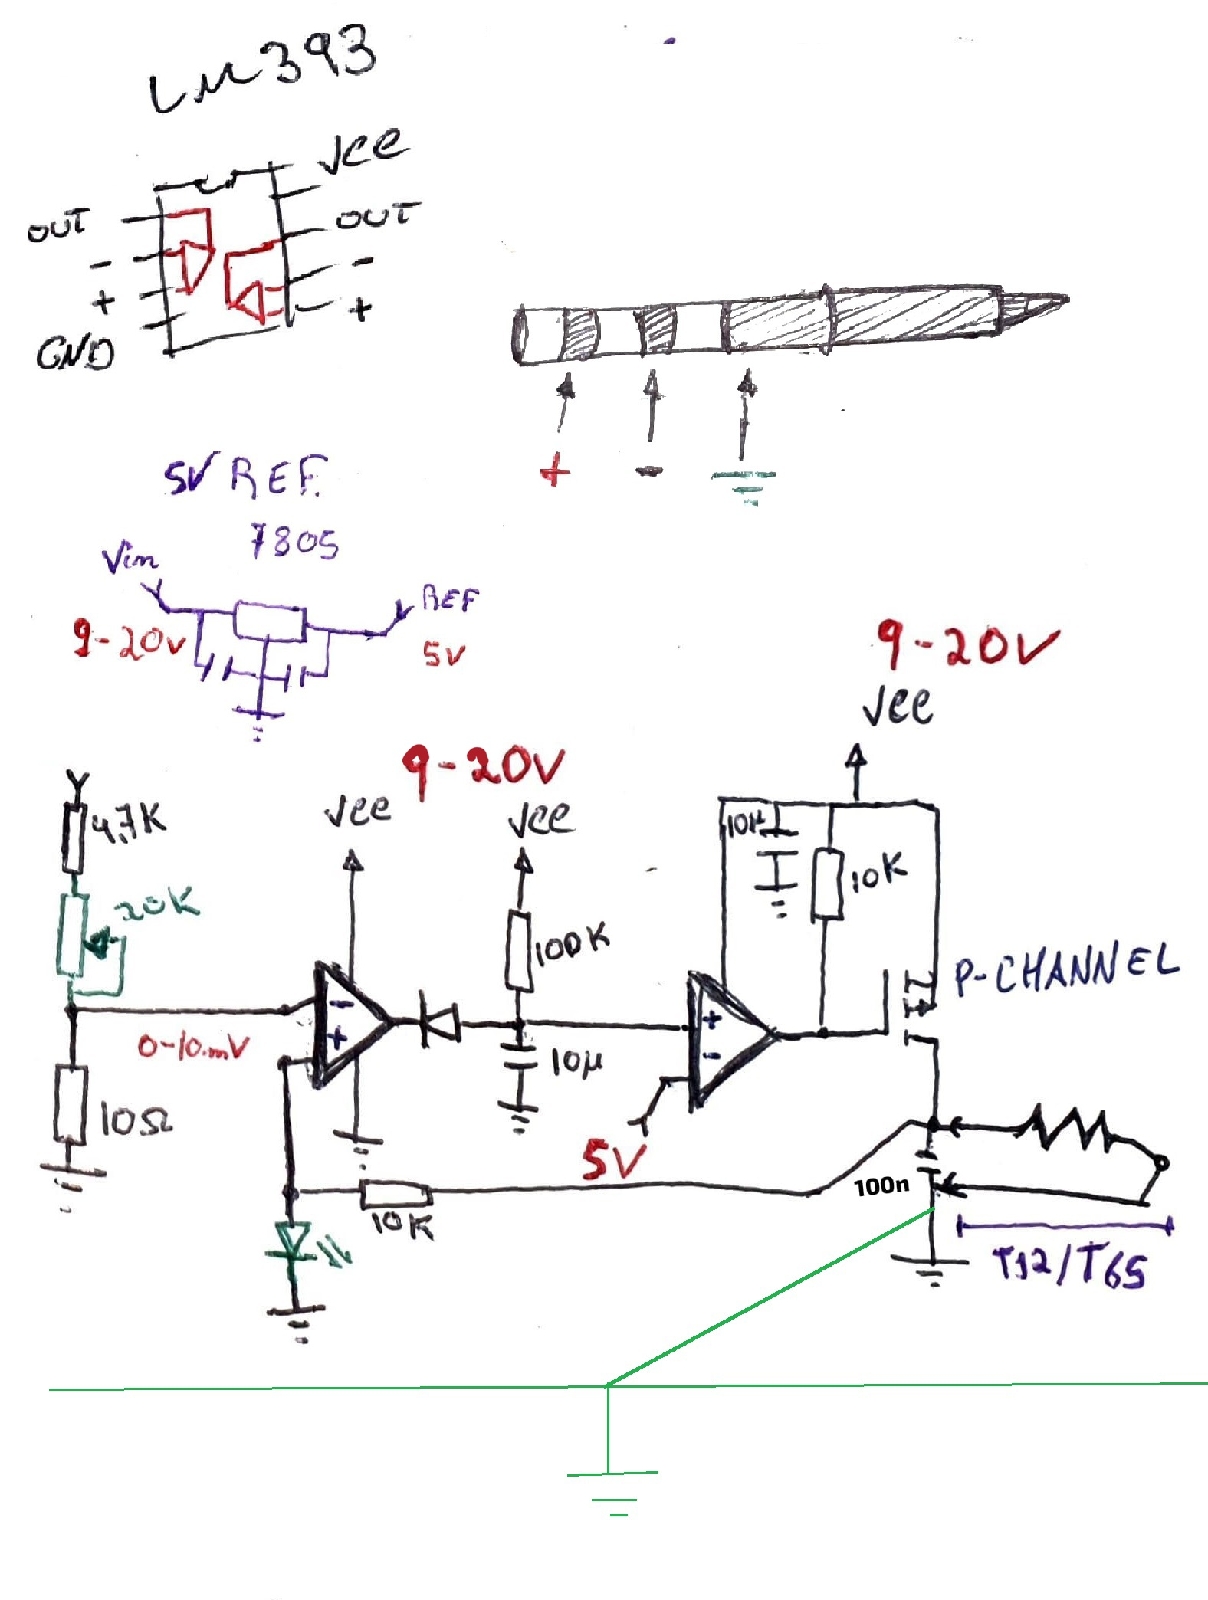 LM393
VCC
OUT
OUT
-
-
+
+
GND
+
-
5V REF.
7805
Vin
REF
9-20V
5V
9-20V
VCC
9-20V
VCC
VCC
4,7K
20K
10µ
10K
100K
P-CHANNEL
-
+
+
-
0-10mV
10µ
10Ω
5V
100n
10K
T12/T65